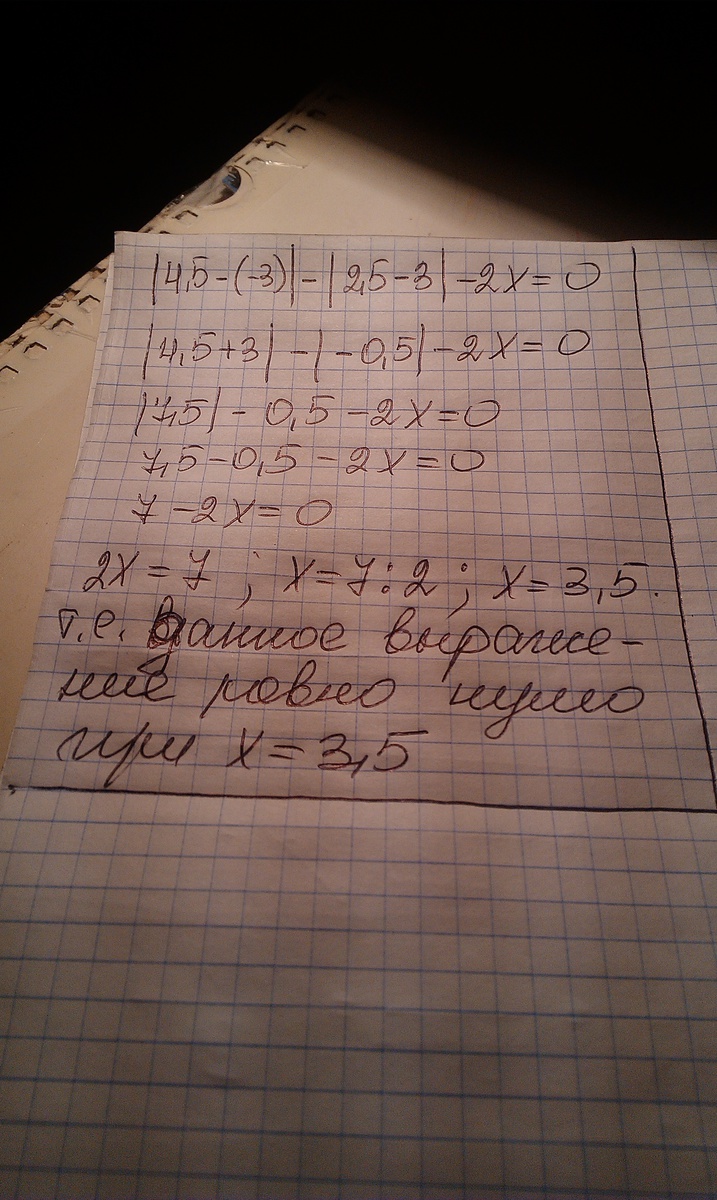 |4,5-(-3)|-|2,5-3|-2x=0
|4,5+3|-|-0,5|-2x=0
|7,5|-0,5-2x=0
7,5-0,5-2x=0
7-2x=0
2x=7; x=7:2; x=3,5.
т.е. данное выраже-
ние ровно нулю
при x=3,5